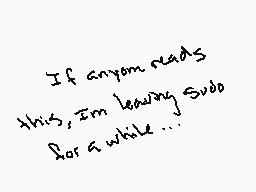 If anyom reads
this, I'm leaving sudo
for a while...